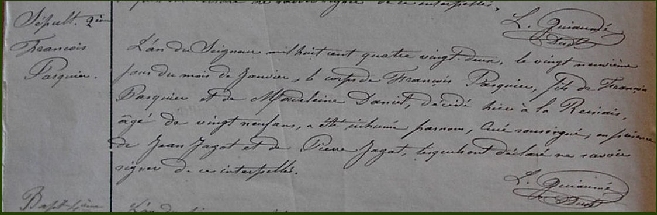 L. Guiaumé
Sépult. de
François
Pasquier.
L'an du Seigneur mil huit cent quatre vingt deux, le vingt neuvième
jour du mois de Janvier, le corps de François Pasquier, fils de François
Pasquier et de Madeleine Danot, décédé hier à la
âgé de vingt neuf ans, a été inhumé par nous, Curé soussigné, en présence
de Jean Jagot et de Pierre Jagot, lesquels ont déclaré ne savoir
signer de ce interpellés.
L. Guiaumé
Baptême